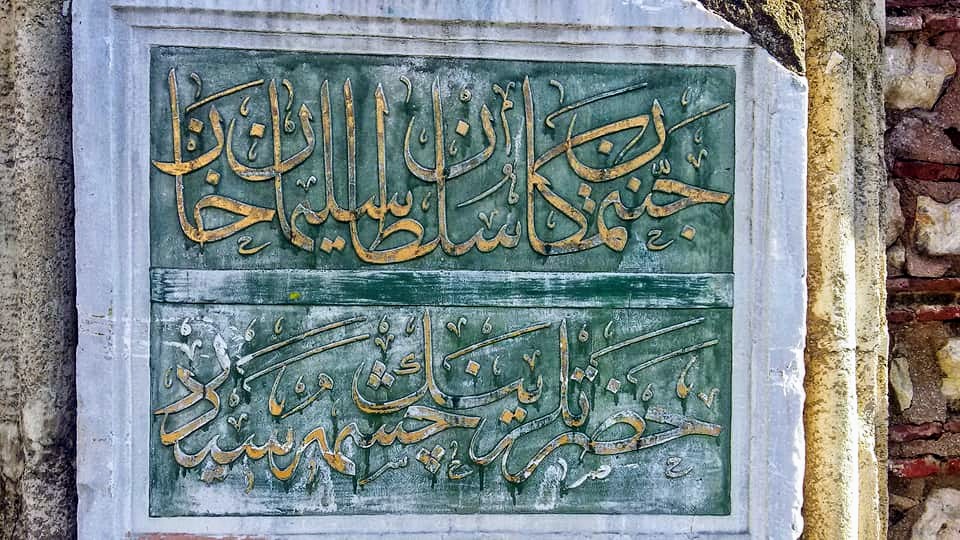 جنتمكان سلطان سليمان خان
حضرتلرينڭ چشمه سيدر